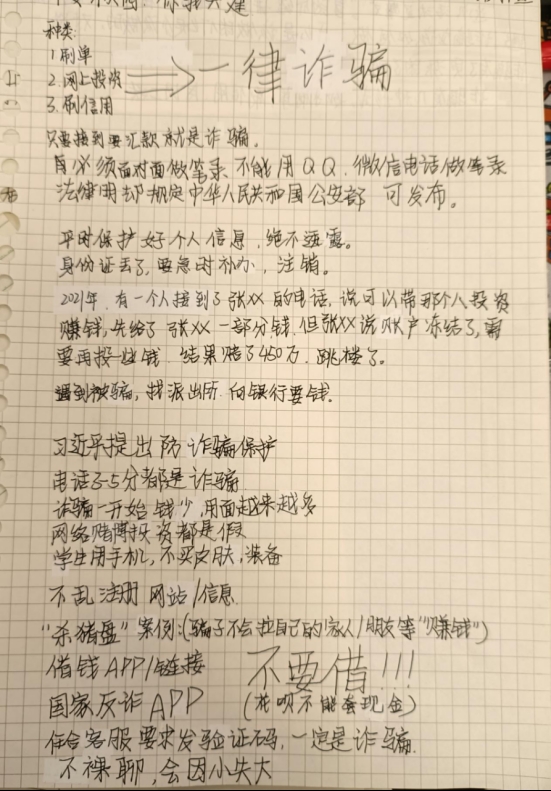 种类:
1.刷单
2.网上投资 一律诈骗
3.刷信用
只要接到要汇款就是诈骗。
必须面对面做笔录.不能用QQ.微信电话做笔录
法律明却规定中华人民共和国公安部 可发布。
平时保护好个人信息,绝不透露。
身份证丢了,要急时补办,注销。
2021年,有一个人接到了张XX的电话,说可以带那个人投资
赚钱,先给了张XX一部分钱,但张XX说账户冻结了,需
要再投些钱 结果赔了450万.跳楼了。
遇到被骗,找派出所.向银行要钱.
习近平提出防诈骗保护
电话3-5分都是诈骗
诈骗一开始钱少,后面越来越多
网络赌博投资都是假
学生用手机,不买皮肤,装备
不乱注册网站/信息.
"杀猪盘"案例:(骗子不会拉自己的家人/朋友等"赚钱")
借钱APP/链接 不要借!!!
国家反诈APP (花呗不能套现金)
任合客服要求发验证码,一定是诈骗.
不裸聊,会因小失大